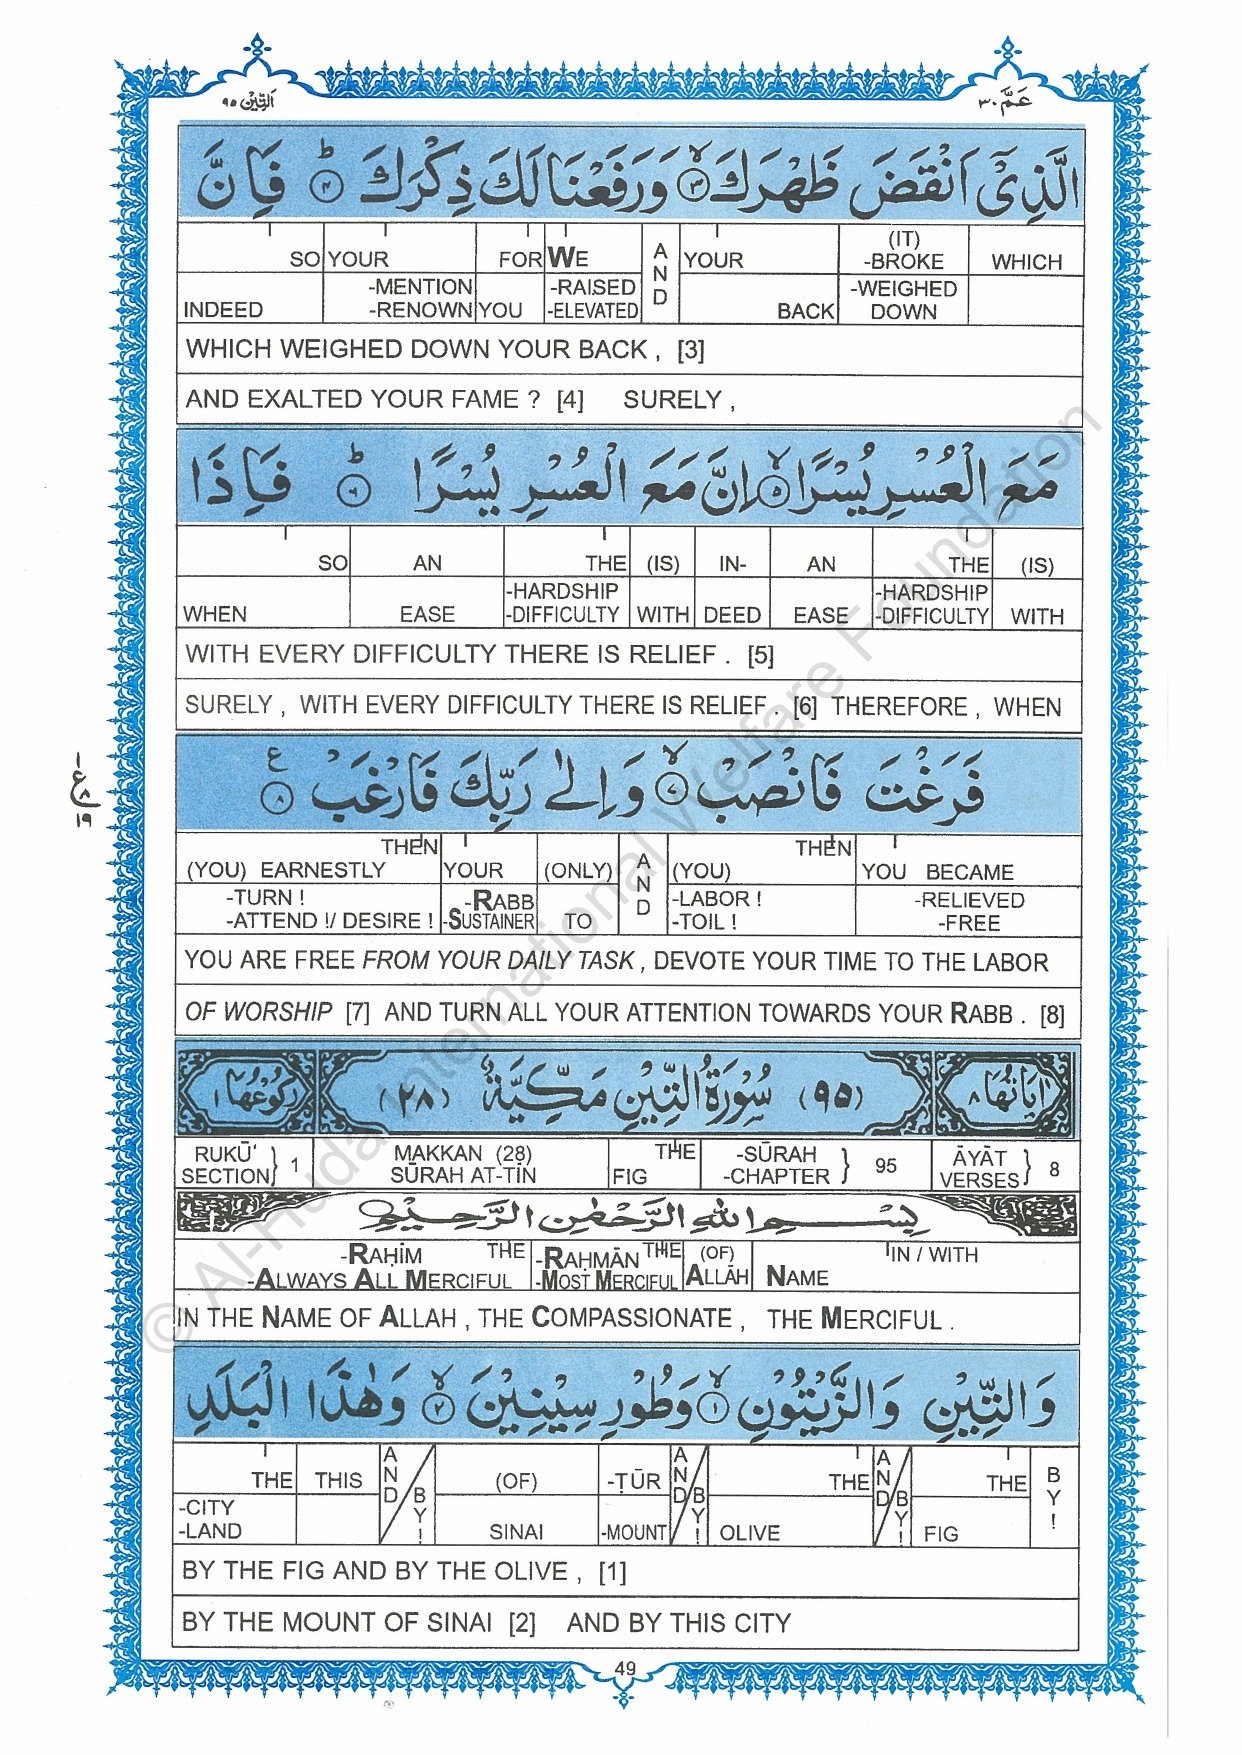 اَلتِّيْن ٩٥
عَمَّ ٣٠
الَّذِيْۤ اَنْقَضَ ظَهْرَكَ ۙ﴿٣﴾ وَرَفَعْنَا لَكَ ذِكْرَكَ ؕ﴿٤﴾ فَاِنَّ
SO YOUR FOR WE AND YOUR (IT) -BROKE WHICH
INDEED -MENTION -RENOWN YOU -RAISED -ELEVATED BACK -WEIGHED DOWN
WHICH WEIGHED DOWN YOUR BACK , [3]
AND EXALTED YOUR FAME ? [4] SURELY ,
مَعَ الْعُسْرِ يُسْرًا ۙ﴿٥﴾ اِنَّ مَعَ الْعُسْرِ يُسْرًا ؕ﴿٦﴾ فَاِذَا
SO AN THE (IS) IN- AN THE (IS)
WHEN EASE -HARDSHIP -DIFFICULTY WITH DEED EASE -HARDSHIP -DIFFICULTY WITH
WITH EVERY DIFFICULTY THERE IS RELIEF . [5]
SURELY , WITH EVERY DIFFICULTY THERE IS RELIEF . [6] THEREFORE , WHEN
فَرَغْتَ فَانْصَبْ ۙ﴿٧﴾ وَاِلٰى رَبِّكَ فَارْغَبْ ﴿٨﴾ ع
١ ع ٨ ١٩
THEN (YOU) EARNESTLY YOUR (ONLY) AND THEN (YOU) YOU BECAME
-TURN ! -ATTEND !/ DESIRE ! -RABB -SUSTAINER TO -LABOR ! -TOIL ! -RELIEVED -FREE
YOU ARE FREE FROM YOUR DAILY TASK , DEVOTE YOUR TIME TO THE LABOR
OF WORSHIP [7] AND TURN ALL YOUR ATTENTION TOWARDS YOUR RABB . [8]
اٰيَاتُهَا ٨ (٩٥) سُوْرَةُ التِّيْنِ مَكِّيَّةٌ (٢٨) رُكُوْعُهَا ١
RUKŪ‘ SECTION } 1 MAKKAN (28) SŪRAH AT-TĪN THE FIG -SŪRAH -CHAPTER } 95 ĀYĀT VERSES } 8
بِسْمِ اللّٰهِ الرَّحْمٰنِ الرَّحِيْمِ
-RAḤĪM THE -RAḤMĀN THE (OF) IN / WITH
-ALWAYS ALL MERCIFUL -MOST MERCIFUL ALLĀH NAME
IN THE NAME OF ALLAH , THE COMPASSIONATE , THE MERCIFUL .
وَالتِّيْنِ وَالزَّيْتُوْنِ ۙ﴿١﴾ وَطُوْرِ سِيْنِيْنَ ۙ﴿٢﴾ وَهٰذَا الْبَلَدِ
THE THIS AND/BY! (OF) -ṬŪR AND/BY! THE AND/BY! THE BY!
-CITY -LAND SINAI -MOUNT OLIVE FIG
BY THE FIG AND BY THE OLIVE , [1]
BY THE MOUNT OF SINAI [2] AND BY THIS CITY
49
© Al-Huda International Welfare Foundation